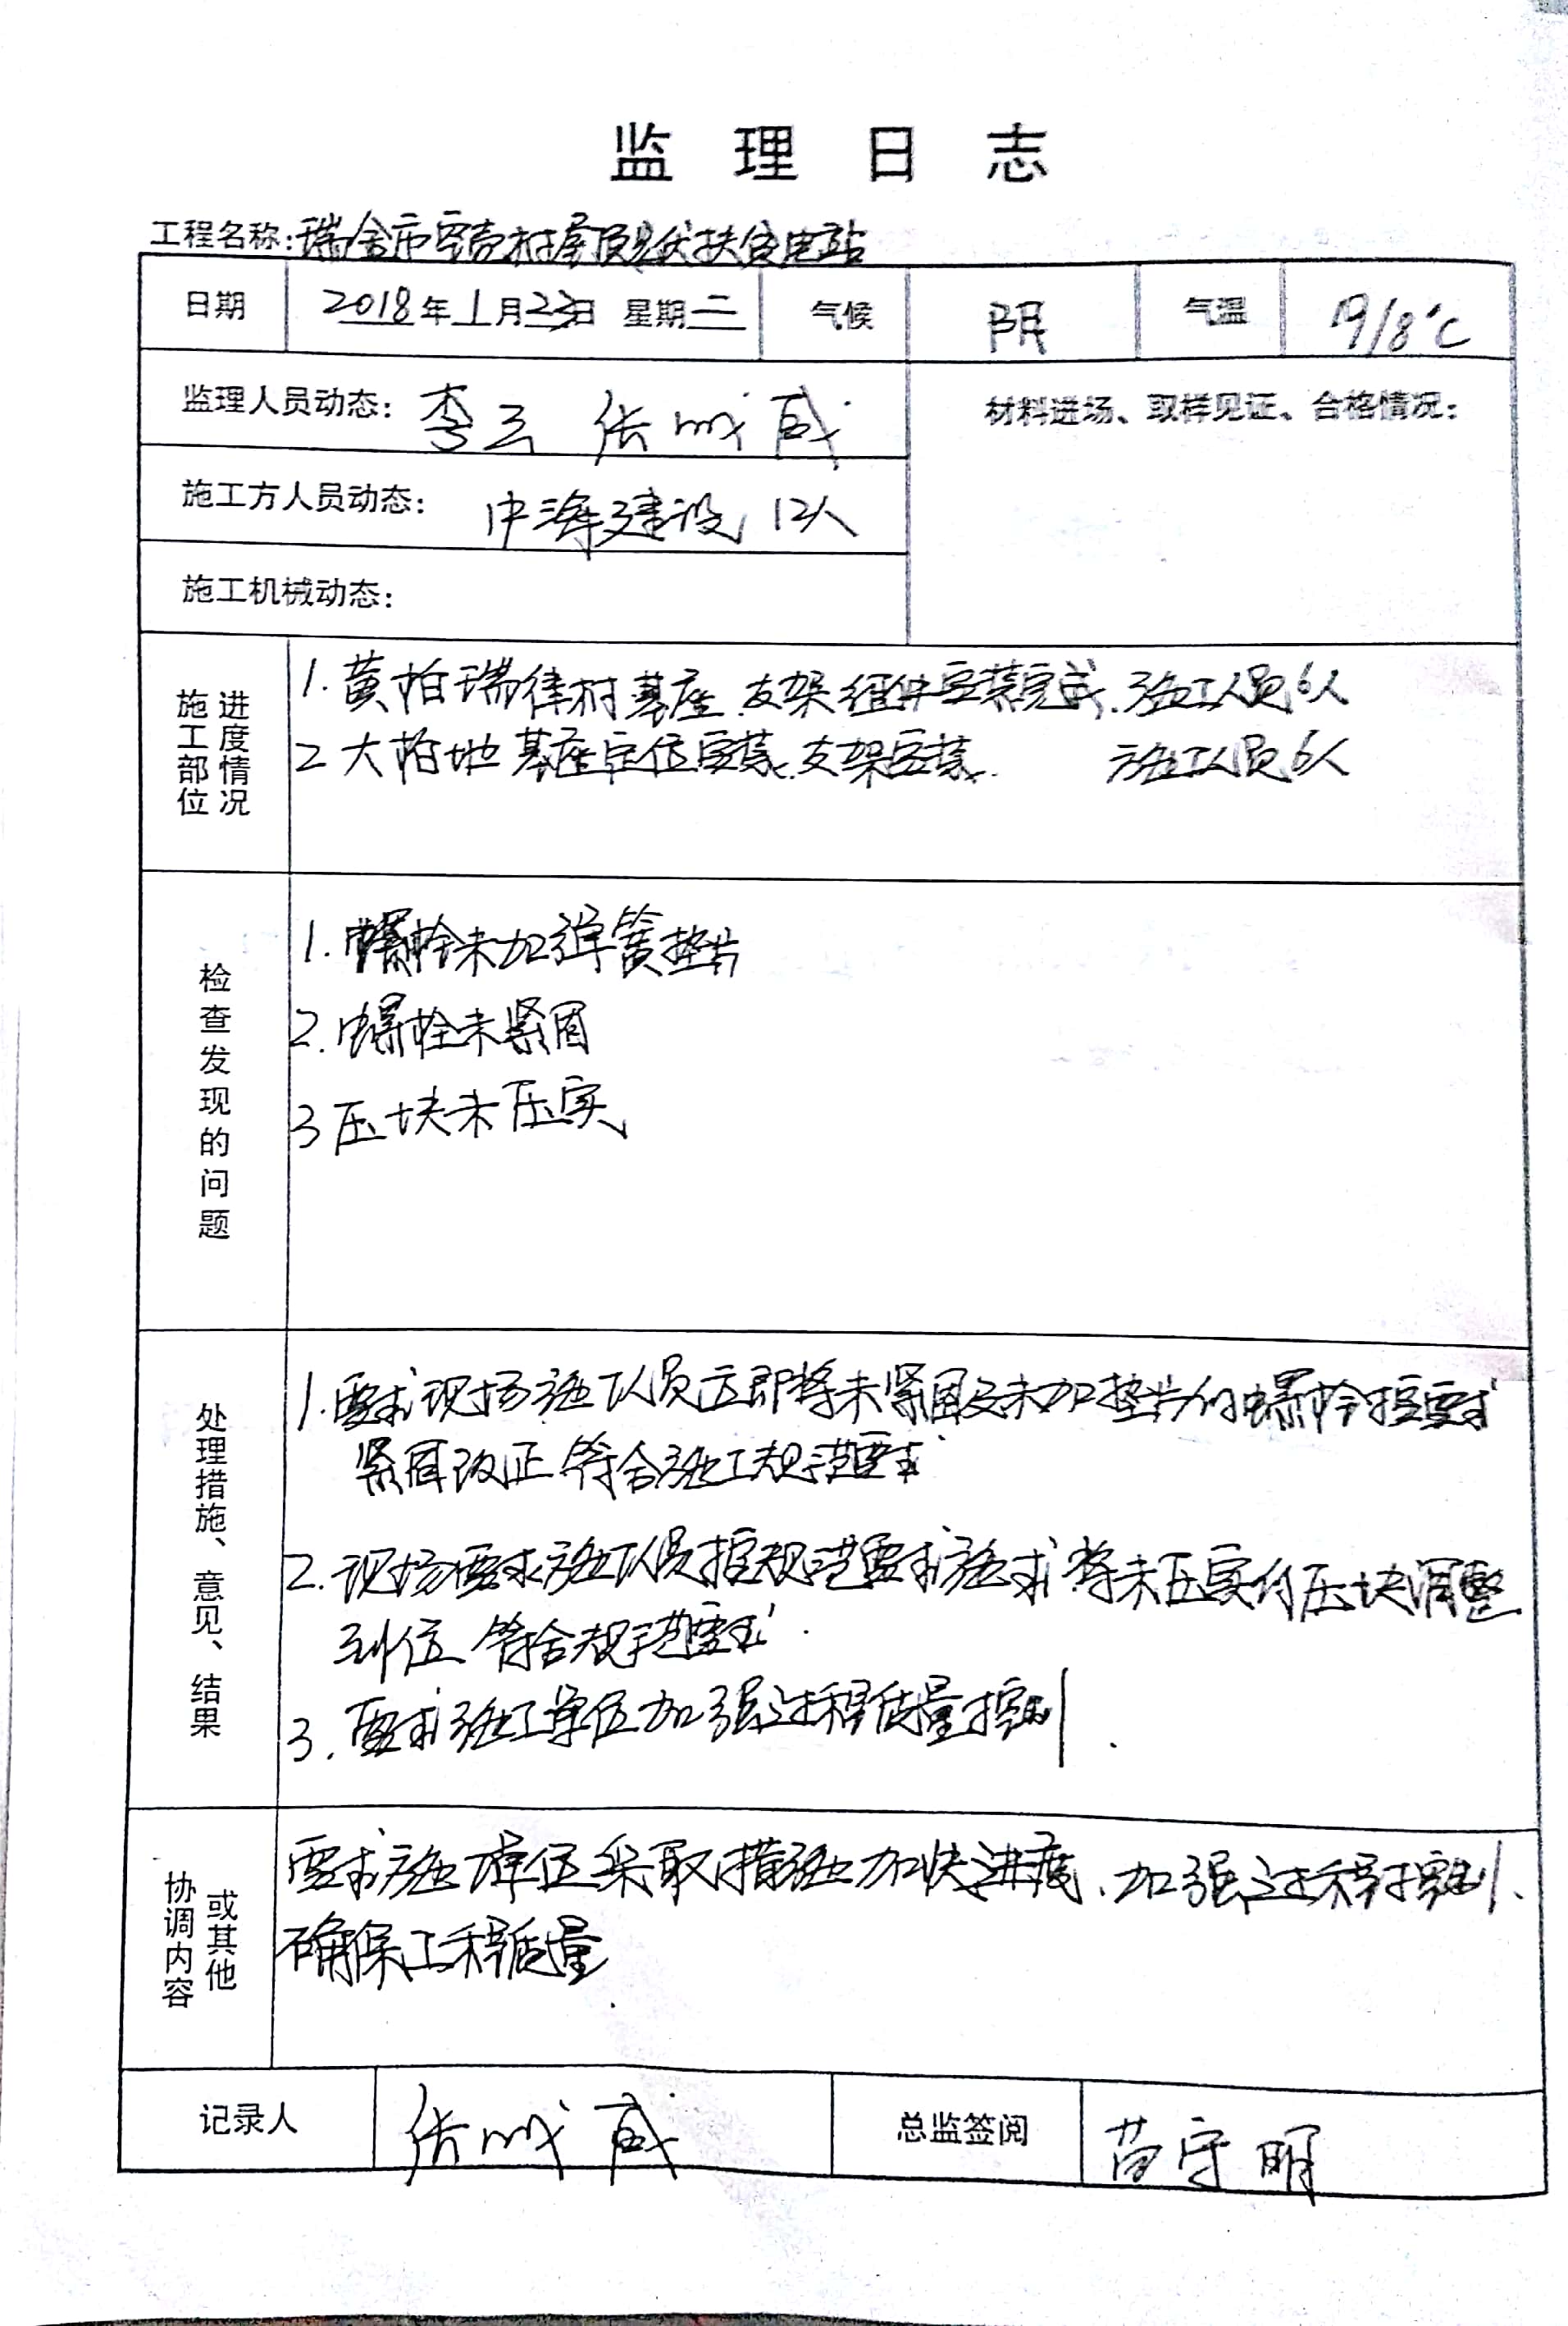 监理日志
工程名称:瑞金市 村屋顶光伏扶贫电站
日期 2018年1月23日 星期二 气候 阴 气温 19/8℃
监理人员动态: 李云 张 威
材料进场、取样见证、合格情况:
施工方人员动态: 中海建设 12人
施工机械动态:
施工部位
进度情况
1.黄柏瑞律村基座、支架组件安装完成、施工人员6人
2 大柏地 基座定位安装、支架安装. 施工人员6人
检查发现的问题
1.螺栓未加弹簧垫片
2.螺栓未紧固
3 压块未压实
处理措施、意见、结果
1.要求现场施工人员立即将未紧固及未加垫片的螺栓按要求
紧固改正 符合施工规范要求
2.现场要求施工人员按规范要求施求 将未压实的压块调整
到位 符合规范要求.
3.要求施工单位加强过程质量控制.
协调内容
或其他
要求施工单位采取措施加快进度、加强过程控制、
确保工程质量.
记录人 张 威 总监签阅 苗守明